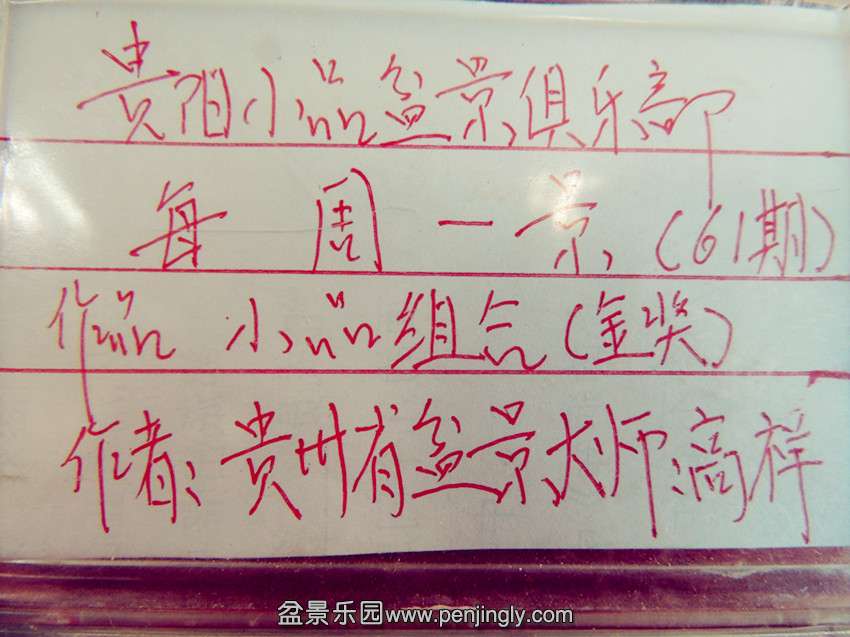 贵阳小品盆景俱乐部
每周一景(61期)
作品 小品组合(金奖)
作者:贵州省盆景大师:高祥
盆景乐园www.penjingly.com